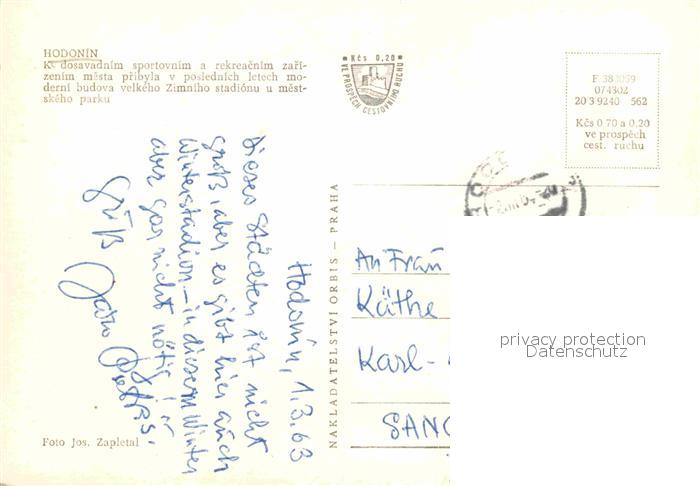 HODONÍN
K dosavadním sportovním a rekreačním zaří-
zením města přibyla v posledních letech mo-
derní budova velkého Zimního stadiónu u měst-
ského parku
Kčs 0,20
VE PROSPĚCH CESTOVNÍHO RUCHU
F 38 1059
074302
20 3 9240 562
Kčs 0 70 a 0,20
ve prospěch
cest. ruchu
Hodonín, 1.3.63
Dieses Städten ist nicht
groß, aber es gibt hier auch
Winterstadion – in diesem Winter
aber gar nicht nötig!
Gruß
NAKLADATELSTVÍ ORBIS – PRAHA
An Frau
Käthe
Karl-
SANG
privacy protection
Datenschutz
Foto Jos. Zapletal